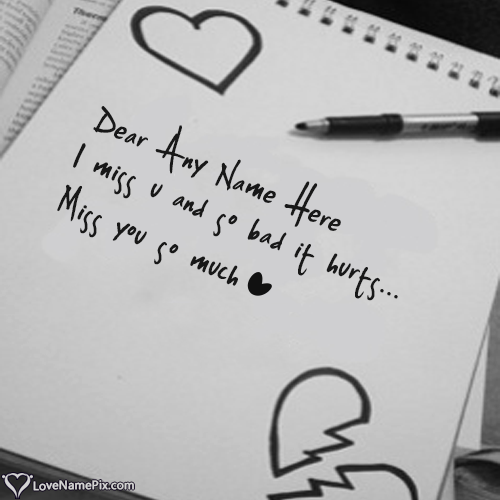 Therm
Dear Any Name Here
I miss u and so bad it hurts...
Miss you so much
LoveNamePix.com